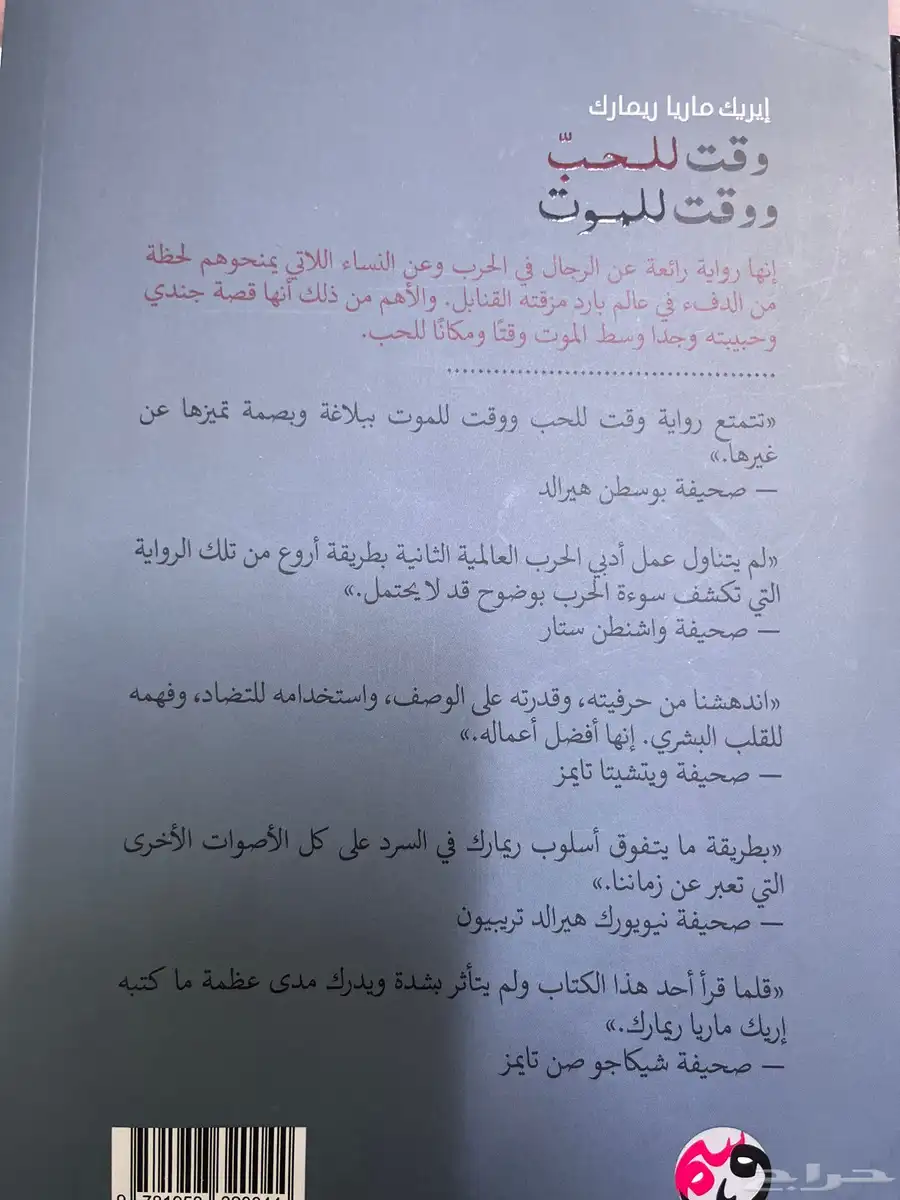 إيريك ماريا ريمارك
وقت للحبّ
ووقت للموت
إنها رواية رائعة عن الرجال في الحرب وعن النساء اللاتي يمنحوهم لحظة
من الدفء في عالم بارد مزقته القنابل. والأهم من ذلك أنها قصة جندي
وحبيبته وجدا وسط الموت وقتًا ومكانًا للحب.
«تتمتع رواية وقت للحب ووقت للموت ببلاغة وبصمة تميزها عن
غيرها.»
— صحيفة بوسطن هيرالد
«لم يتناول عمل أدبي الحرب العالمية الثانية بطريقة أروع من تلك الرواية
التي تكشف سوءة الحرب بوضوح قد لا يحتمل.»
— صحيفة واشنطن ستار
«اندهشنا من حرفيته، وقدرته على الوصف، واستخدامه للتضاد، وفهمه
للقلب البشري. إنها أفضل أعماله.»
— صحيفة ويتشيتا تايمز
«بطريقة ما يتفوق أسلوب ريمارك في السرد على كل الأصوات الأخرى
التي تعبر عن زماننا.»
— صحيفة نيويورك هيرالد تريبيون
«قلما قرأ أحد هذا الكتاب ولم يتأثر بشدة ويدرك مدى عظمة ما كتبه
إريك ماريا ريمارك.»
— صحيفة شيكاجو صن تايمز
حراج